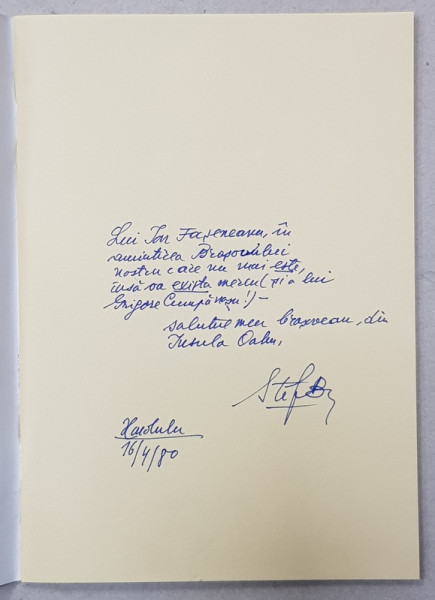 Lui Ion Fașeneanu, în
amintirea Brașovului
nostru care nu mai este,
însă va exista mereu (și a lui
Grigore Cumpănașu!) –
salutul meu brașovean, din
Insula Oahu,
Ștef
Honolulu
16/4/80